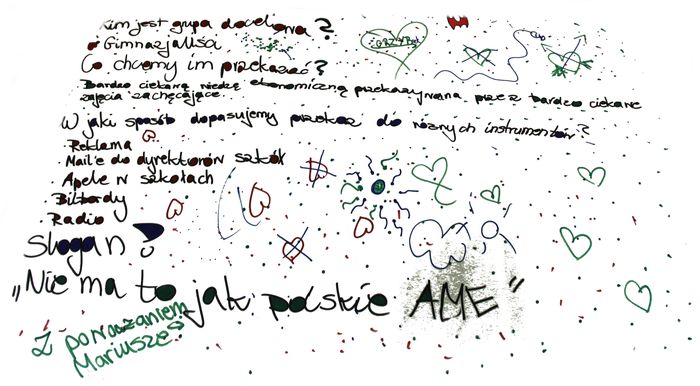 Kim jest grupa docelowa?
Gimnazjaliści
Co chcemy im przekazać?
Bardzo ciekawą wiedzę ekonomiczną przekazywaną przez bardzo ciekawe
zajęcia zachęcające.
W jaki sposób dopasujemy przekaz do różnych instrumentów?
Reklama
Mail'e do dyrektorów szkół
Apele w szkołach
Bilbordy
Radio
Slogan?
„Nie ma to jak polskie AME"
Z poważaniem
Mariusze